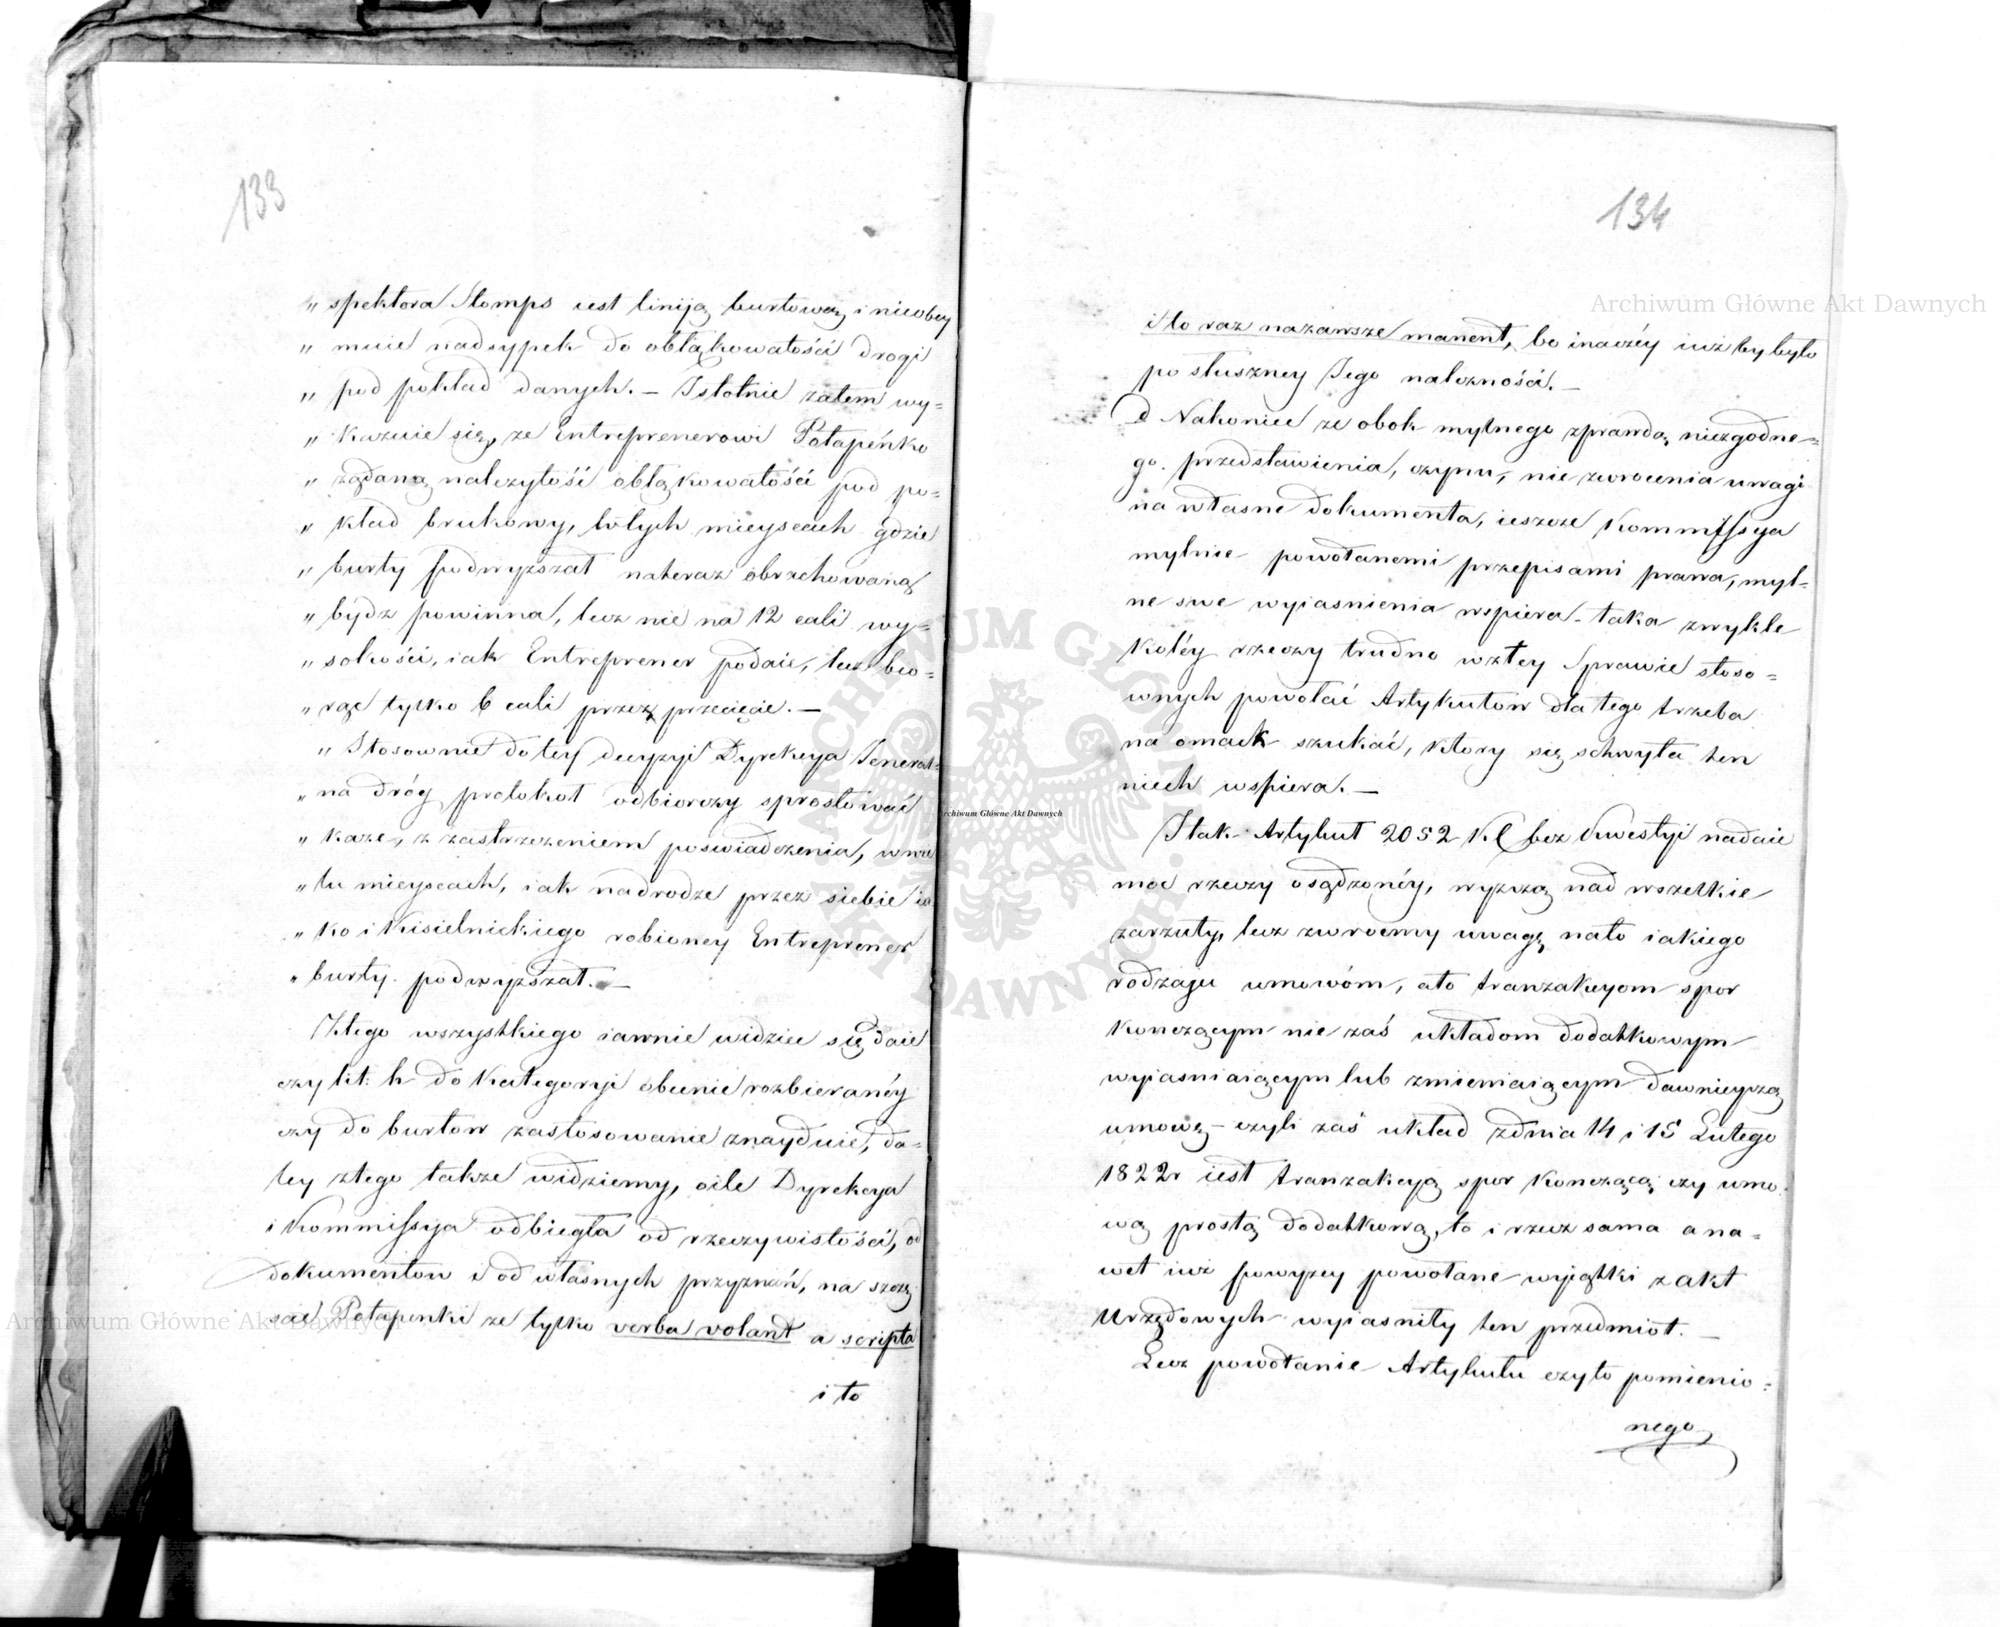 133
„ spektora Stomps iest liniją burtową i nieobey
„ muie nadsypek do obłąkowatości drogi
„ pod pokład danych. – Istotnie zatem wy=
„ kazuie się, ze Entreprenerowi Potapeńko
„ ządaną nalezytość obłąkowatości pod po=
„ kład brukowy, wtych mieyscach gdzie
„ burty podwyzszał nateraz obrachowaną
„ bydz powinna, lecz nie na 12 cali wy=
„ sokości, iak Entreprener podaie, lecz bio=
„ rąc tylko 6 cali przez przecięcie. —
„ Stosownie do tey decyzyi Dyrekcya Jeneral=
„ na dróg protokoł odbiorczy sprostować
„ kaze, z zastrzezeniem poswiadczenia, w
„ tu mieyscach, iak nadrodze przez siebie ia
„ ko i Kisielnickiego robioney Entreprener
„ burty podwyzszał. —
Ztego wszystkiego iawnie widziec się daie
czy lit: h do kategoryi obecnie rozbieranéy
czy do burtow zastosowanie znayduie, da=
ley ztego także widziemy, oile Dyrekcya
i Kommissya odbiegła od rzeczywistości, od
dokumentow i od własnych przyznań, na szczę
scie Potapenki ze tylko verba volant a scripta
i to
134
i to raz nazawsze manent, bo inaczéy iuż by było
po słuszney Jego nalezności. —
d Nakoniec ze obok mylnego zprawdą niezgodne=
go przedstawienia, czynu, nie zwrocenia uwagi
na własne dokumenta, ieszcze Kommissya
mylnie powołanemi przepisami prawa, myl=
ne swe wyiasnienia wspiera. taka zwykle
koléy rzeczy trudno wzłey Sprawie stoso=
wnych powołać Artykułow dla tego trzeba
na omack szukać, ktory się schwyta ten
niech wspiera. —
I tak Artykuł 2052 KC bez kwestyi nadaie
moc rzeczy osądzonéy, wyzszą nad wszelkie
zarzuty, lecz zwroćmy uwagę nato iakiego
rodzaju umowóm, ato tranzakcyom spor
konczącym nie zaś układom dodatkowym
wyiasniaiącym lub zmieniaiącym dawnieyszą
umowę – czyli zaś układ zdnia 14 i 15 Lutego
1822r iest tranzakcyą spor konczącą czy umo
wą prostą dodatkową, to i rzecz sama a na=
wet iuż powyzey powołane wyiątki z akt
Urzędowych wyiasniły ten przedmiot. —
Lecz powołanie Artykułu czyto pomienio=
nego
Archiwum Główne Akt Dawnych
Archiwum Główne Akt Dawnych
Archiwum Główne Akt Dawnych
ARCHIWUM GŁÓWNE AKT DAWNYCH